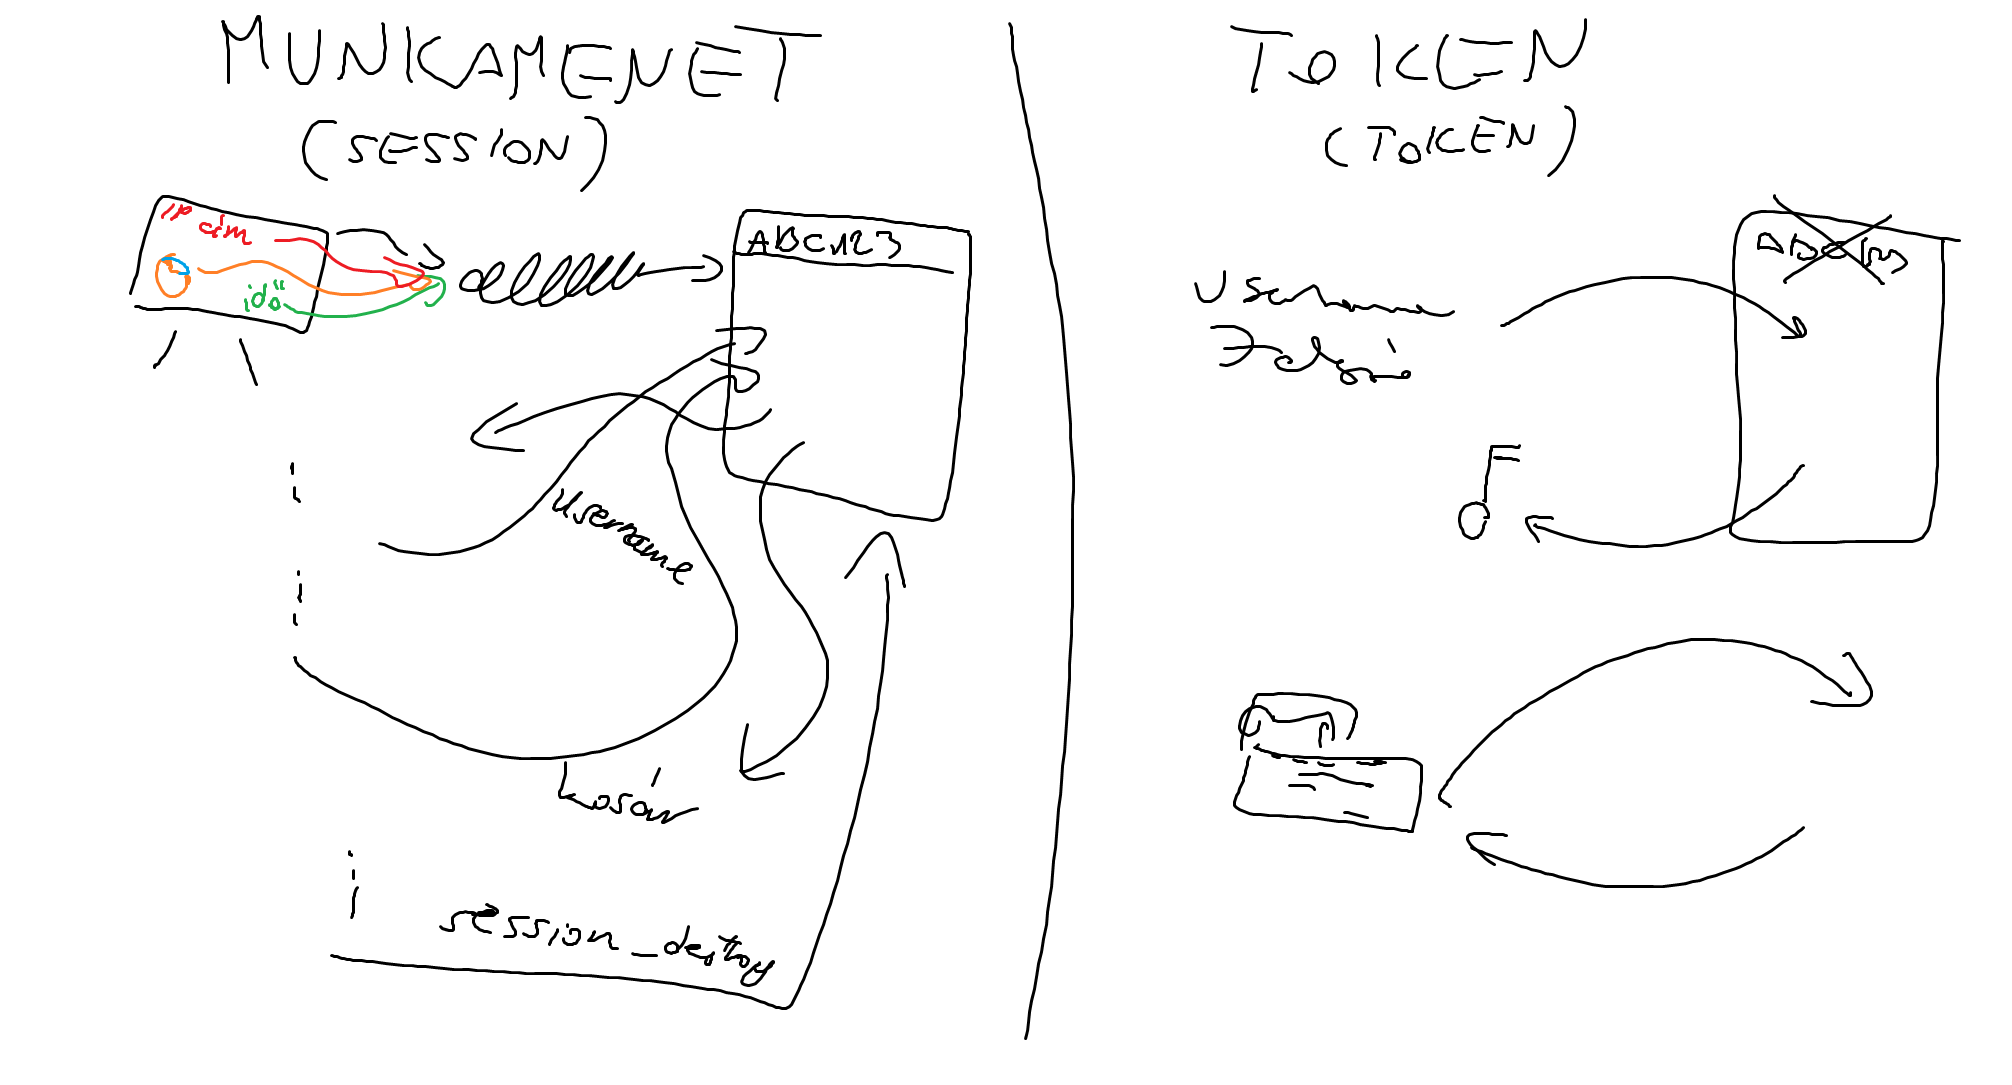 MUNKAMENET
(SESSION)
IP cím
idő
ABC123
username
kosár
session_destroy
TOKEN
(TOKEN)
Username
Jelszó